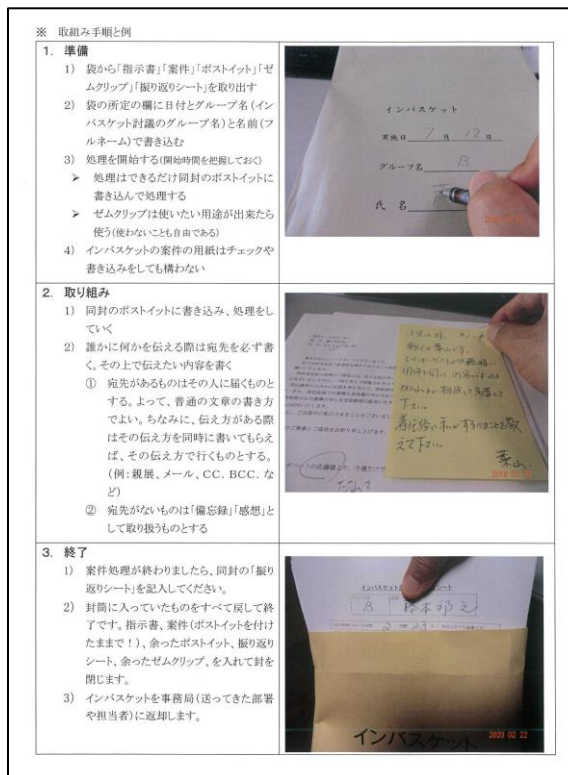 ※ 取組み手順と例
1. 準備
1) 袋から「指示書」「案件」「ポストイット」「ゼ
ムクリップ」「振り返りシート」を取り出す
2) 袋の所定の欄に日付とグループ名(イン
バスケット討議のグループ名)と名前(フ
ルネーム)で書き込む
3) 処理を開始する(開始時間を把握しておく)
➢ 処理はできるだけ同封のポストイットに
書き込んで処理する
➢ ゼムクリップは使いたい用途が出来たら
使う(使わないことも自由である)
4) インバスケットの案件の用紙はチェックや
書き込みをしても構わない
インバスケット
実施日 7月12日
グループ名 B
氏 名
2. 取り組み
1) 同封のポストイットに書き込み、処理をし
ていく
2) 誰かに何かを伝える際は宛先を必ず書
く。その上で伝えたい内容を書く
① 宛先があるものはその人に届くものと
する。よって、普通の文章の書き方
でよい。ちなみに、伝え方がある際
はその伝え方を同時に書いてもらえ
ば、その伝え方で行くものとする。
(例:親展、メール、CC.BCC.な
ど)
② 宛先がないものは「備忘録」「感想」と
して取り扱うものとする
下さい。
着任後に私がすることを教
えて下さい。
葉山
3. 終了
1) 案件処理が終わりましたら、同封の「振り
返りシート」を記入してください。
2) 封筒に入っていたものをすべて戻して終
了です。指示書、案件(ポストイットを付け
たままで!)、余ったポストイット、振り返り
シート、余ったゼムクリップ、を入れて封を
閉じます。
3) インバスケットを事務局(送ってきた部署
や担当者)に返却します。
B
インバスケット
2020 02 22